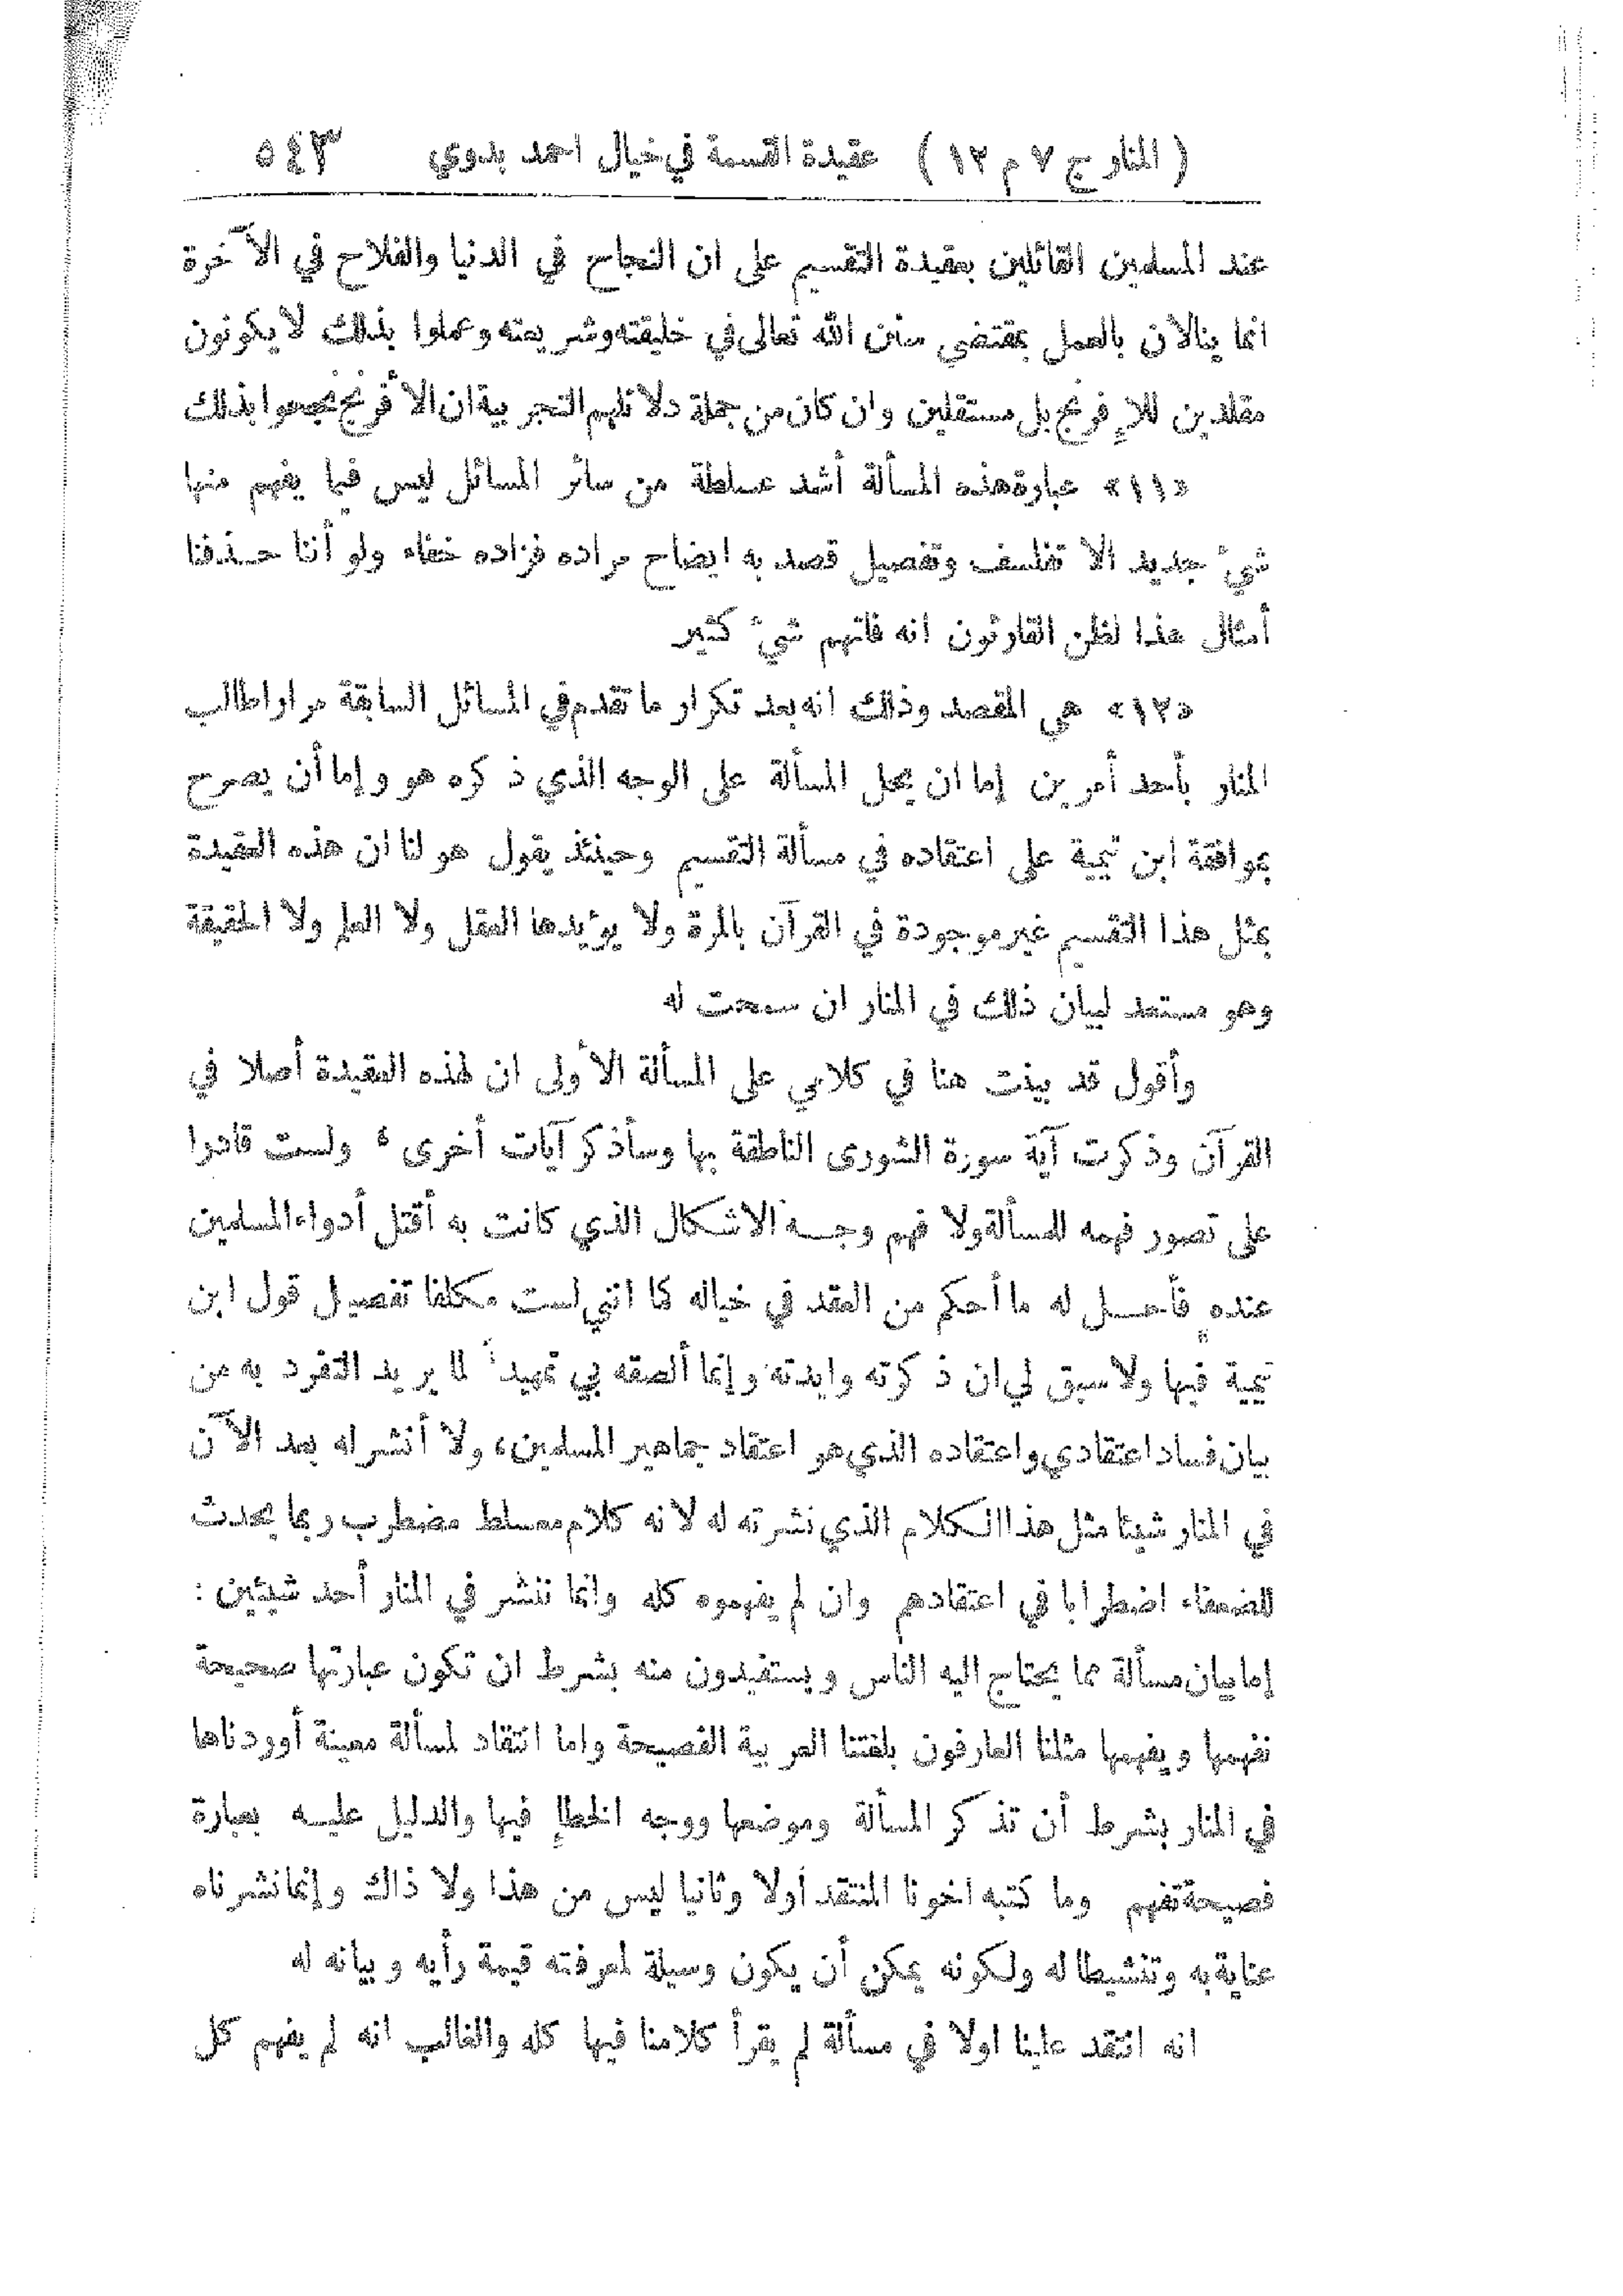 ( المنار ج ٧ م ١٢ ) عقيدة القسمة في خيال احمد بدوي ٥٤٣
عند المسلمين القائلين بعقيدة التقسيم على ان النجاح في الدنيا والفلاح في الآخرة
انما ينالان بالعمل بمقتضى سنن الله تعالى في خليقته وشريعته وعملوا بذلك لا يكونون
مقلدين للإفرنج بل مستقلين وان كان من جملة دلائلهم التجربية ان الأفرنج نجحوا بذلك
«١١» عبارة هذه المسألة أشد عسلطة من سائر المسائل ليس فيما يفهم منها
شيء جديد الا تفلسف وتفصيل قصد به ايضاح مراده فزاده خفاء ولو أننا حذفنا
أمثال هذا لظن القارئون انه فاتهم شيء كثير
«١٢» هي المقصد وذلك انه بعد تكرار ما تقدم في المسائل السابقة مرارا طالب
المنار بأحد أمرين إما ان يحل المسألة على الوجه الذي ذكره هو وإما أن يصرح
بموافقة ابن تيمية على اعتقاده في مسألة التقسيم وحينئذ يقول هو لنا ان هذه العقيدة
بمثل هذا التقسيم غير موجودة في القرآن بالمرة ولا يؤيدها العقل ولا العلم ولا الحقيقة
وهو مستعد لبيان ذلك في المنار ان سمحت له
وأقول قد بينت هنا في كلامي على المسألة الأولى ان لهذه العقيدة أصلا في
القرآن وذكرت آية سورة الشورى الناطقة بها وسأذكر آيات أخرى ، ولست قادرا
على تصور فهمه للمسألة ولا فهم وجه الاشكال الذي كانت به أقتل أدواء المسلمين
عنده فأحل له ما أحكم من العقد في خياله كما انني لست مكلفا تفصيل قول ابن
تيمية فيها ولا سبق لي ان ذكرته وايدته وإنما ألصقه بي تمهيدا لما يريد التفرد به من
بيان فساد اعتقادي واعتقاده الذي هو اعتقاد جماهير المسلمين، ولا أنشر له بعد الآن
في المنار شيئا مثل هذا الكلام الذي نشرته له لانه كلام معسلط مضطرب ربما يحدث
للضعفاء اضطرابا في اعتقادهم وان لم يفهموه كله وانما ننشر في المنار أحد شيئين :
إما بيان مسألة مما يحتاج اليه الناس ويستفيدون منه بشرط ان تكون عبارتها صحيحة
نفهمها ويفهمها مثلنا العارفون بلغتنا العربية الفصيحة واما انتقاد لمسألة معينة أوردناها
في المنار بشرط أن تذكر المسألة وموضعها ووجه الخطإ فيها والدليل عليه بعبارة
فصيحة تفهم وما كتبه اخونا المنتقد أولا وثانيا ليس من هذا ولا ذاك وإنما نشرناه
عناية به وتنشيطا له ولكونه يمكن أن يكون وسيلة لمعرفته قيمة رأيه وبيانه له
انه انتقد علينا اولا في مسألة لم يقرأ كلامنا فيها كله والغالب انه لم يفهم كل